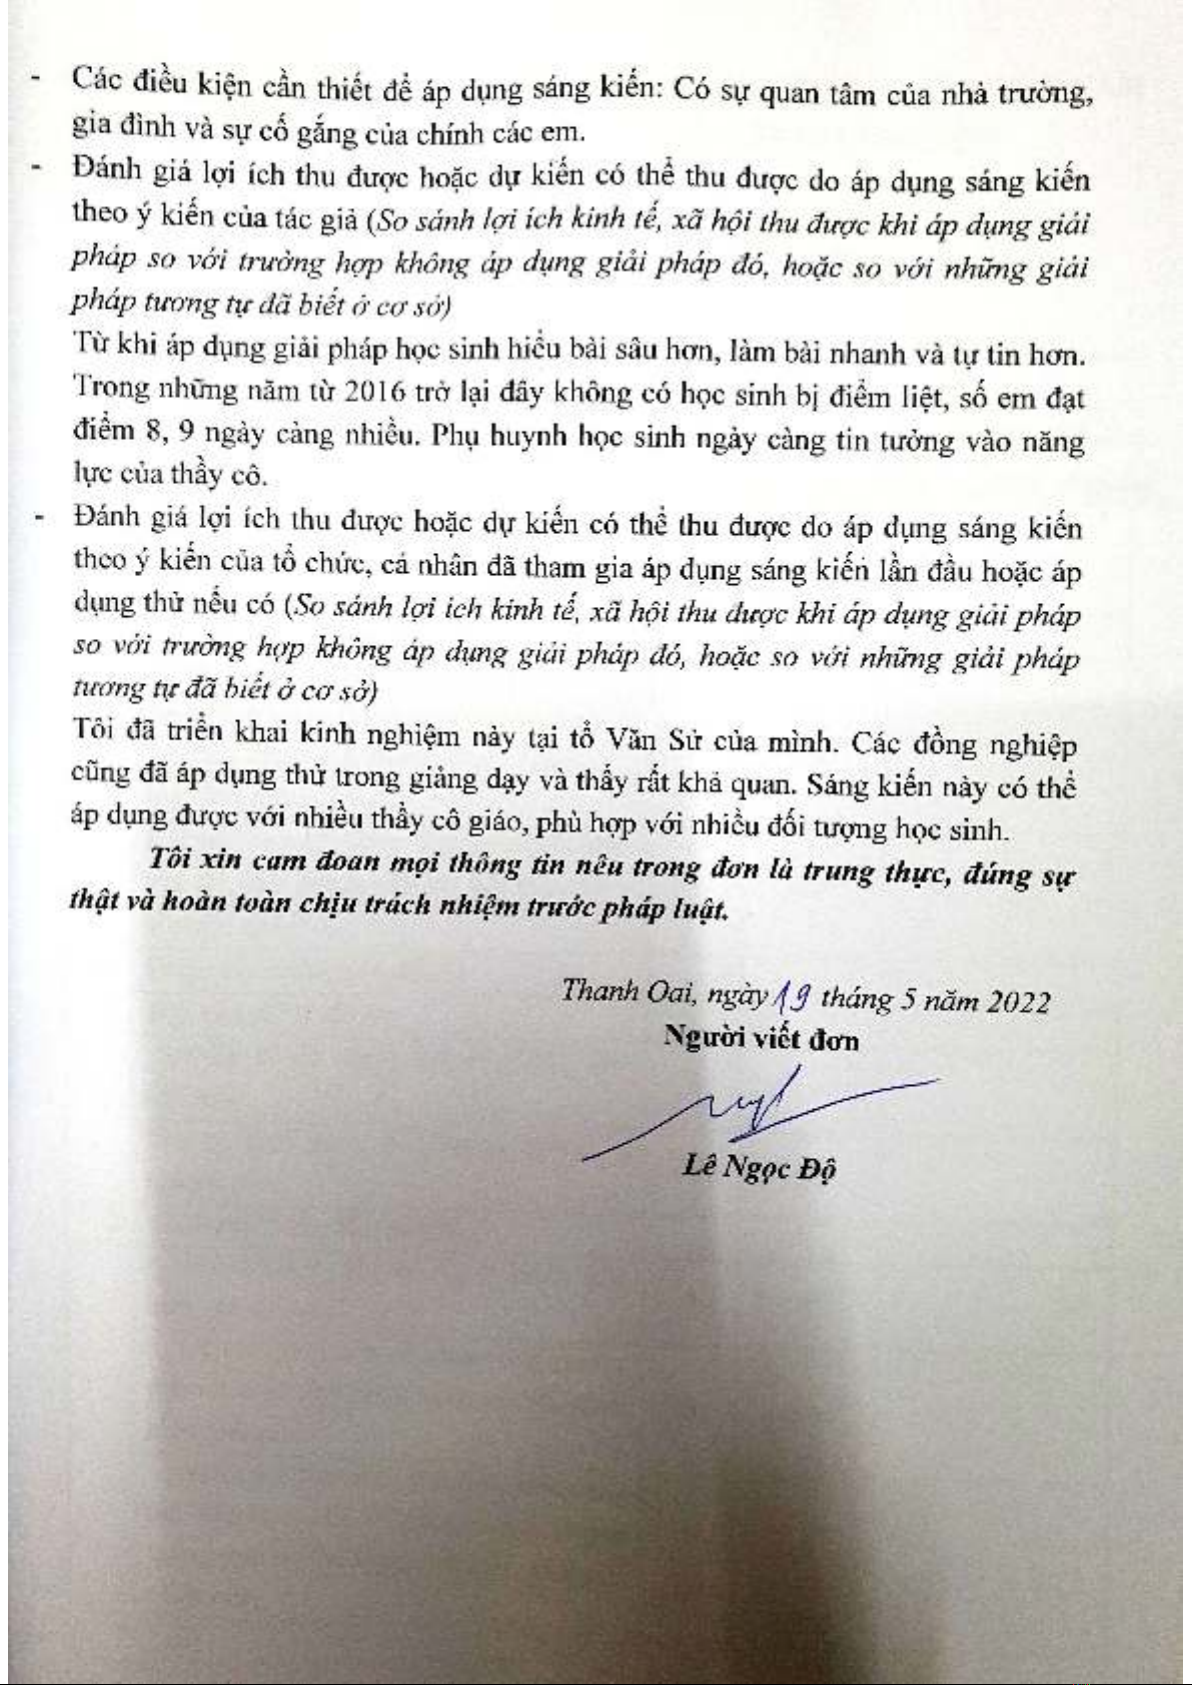 - Các điều kiện cần thiết để áp dụng sáng kiến: Có sự quan tâm của nhà trường,
gia đình và sự cố gắng của chính các em.
- Đánh giá lợi ích thu được hoặc dự kiến có thể thu được do áp dụng sáng kiến
theo ý kiến của tác giả (So sánh lợi ích kinh tế, xã hội thu được khi áp dụng giải
pháp so với trường hợp không áp dụng giải pháp đó, hoặc so với những giải
pháp tương tự đã biết ở cơ sở)
Từ khi áp dụng giải pháp học sinh hiểu bài sâu hơn, làm bài nhanh và tự tin hơn.
Trong những năm từ 2016 trở lại đây không có học sinh bị điểm liệt, số em đạt
điểm 8, 9 ngày càng nhiều. Phụ huynh học sinh ngày càng tin tưởng vào năng
lực của thầy cô.
- Đánh giá lợi ích thu được hoặc dự kiến có thể thu được do áp dụng sáng kiến
theo ý kiến của tổ chức, cá nhân đã tham gia áp dụng sáng kiến lần đầu hoặc áp
dụng thử nếu có (So sánh lợi ích kinh tế, xã hội thu được khi áp dụng giải pháp
so với trường hợp không áp dụng giải pháp đó, hoặc so với những giải pháp
tương tự đã biết ở cơ sở)
Tôi đã triển khai kinh nghiệm này tại tổ Văn Sử của mình. Các đồng nghiệp
cũng đã áp dụng thử trong giảng dạy và thấy rất khả quan. Sáng kiến này có thể
áp dụng được với nhiều thầy cô giáo, phù hợp với nhiều đối tượng học sinh.
Tôi xin cam đoan mọi thông tin nêu trong đơn là trung thực, đúng sự
thật và hoàn toàn chịu trách nhiệm trước pháp luật.
Thanh Oai, ngày 19 tháng 5 năm 2022
Người viết đơn
Lê Ngọc Độ